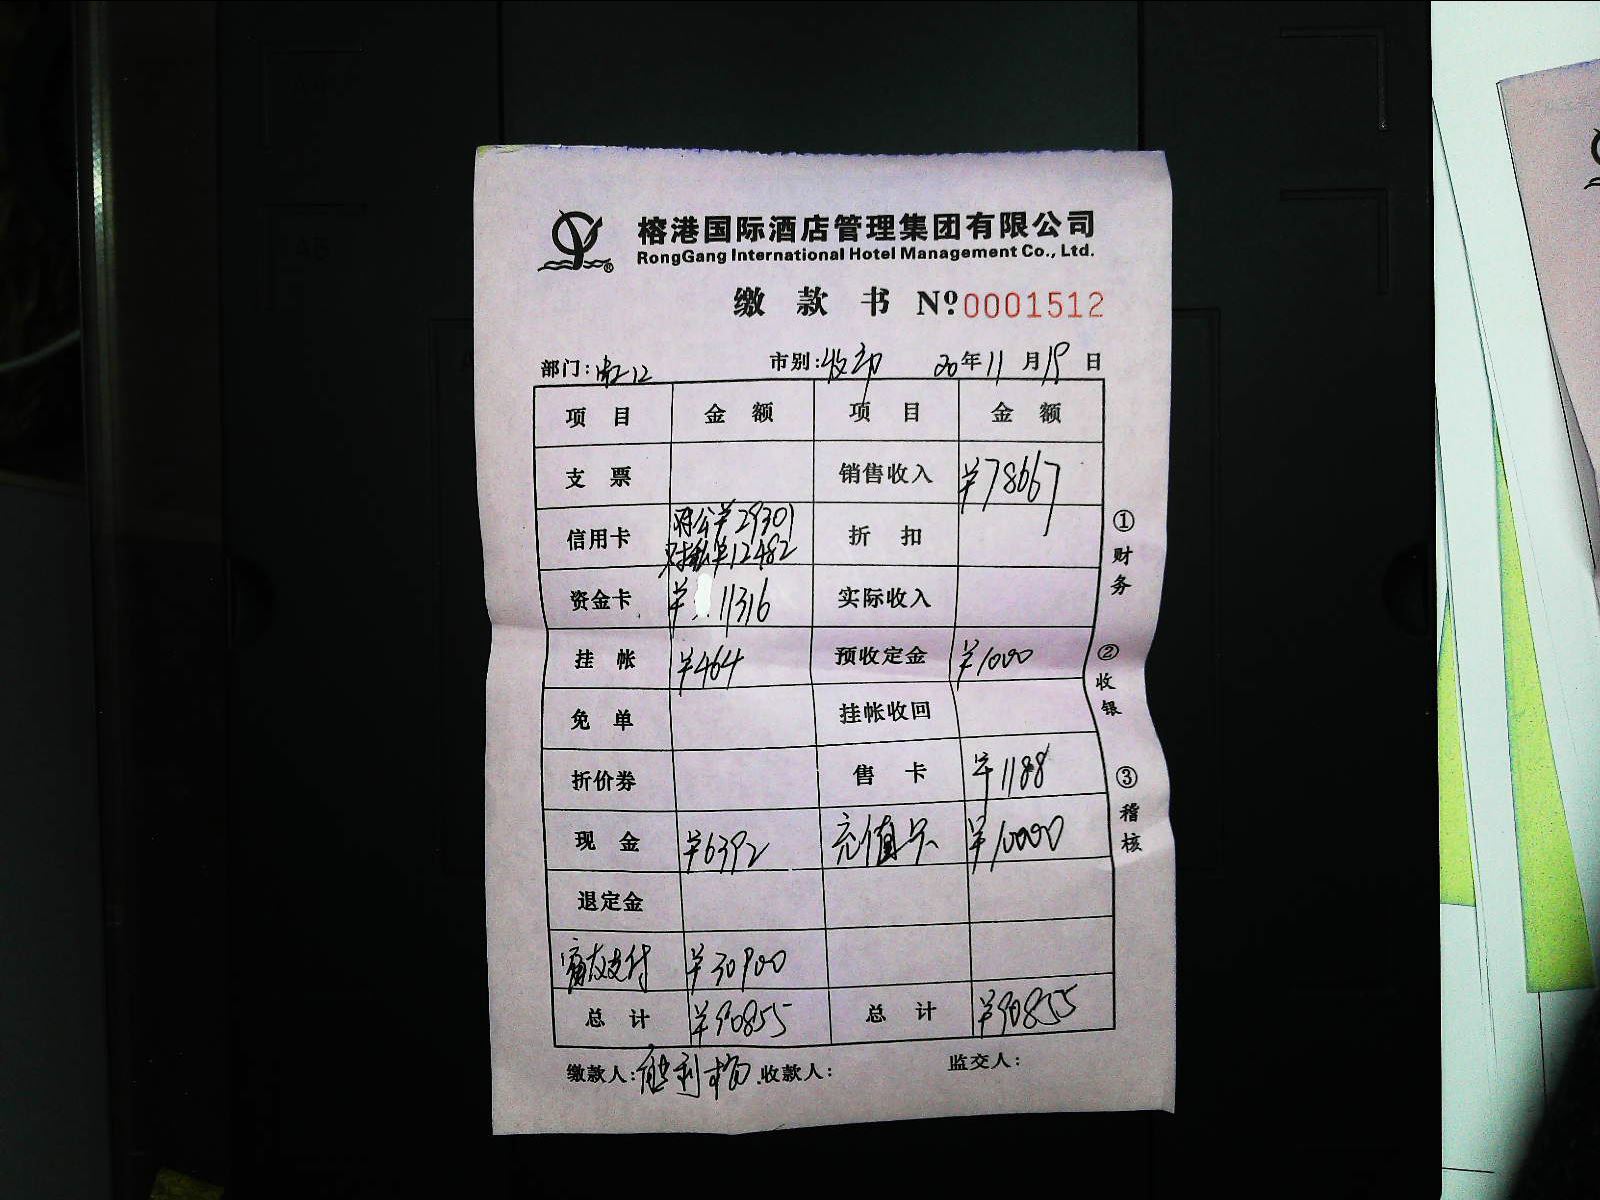 榕港国际酒店管理集团有限公司
RongGang International Hotel Management Co., Ltd.
缴款书 Nº 0001512
部门: 市别: 20年11月19日
项目 金额 项目 金额
支票 销售收入 ¥78667
信用卡 对公¥29301 折扣
对私¥12482
资金卡 ¥11316 实际收入
挂帐 ¥464 预收定金 ¥1000
免单 挂帐收回
折价券 售卡 ¥1188
现金 ¥6392 充值卡 ¥10000
退定金
支付 ¥30900
总计 ¥90855 总计 ¥90855
缴款人: 收款人: 监交人:
①财务
②收银
③稽核